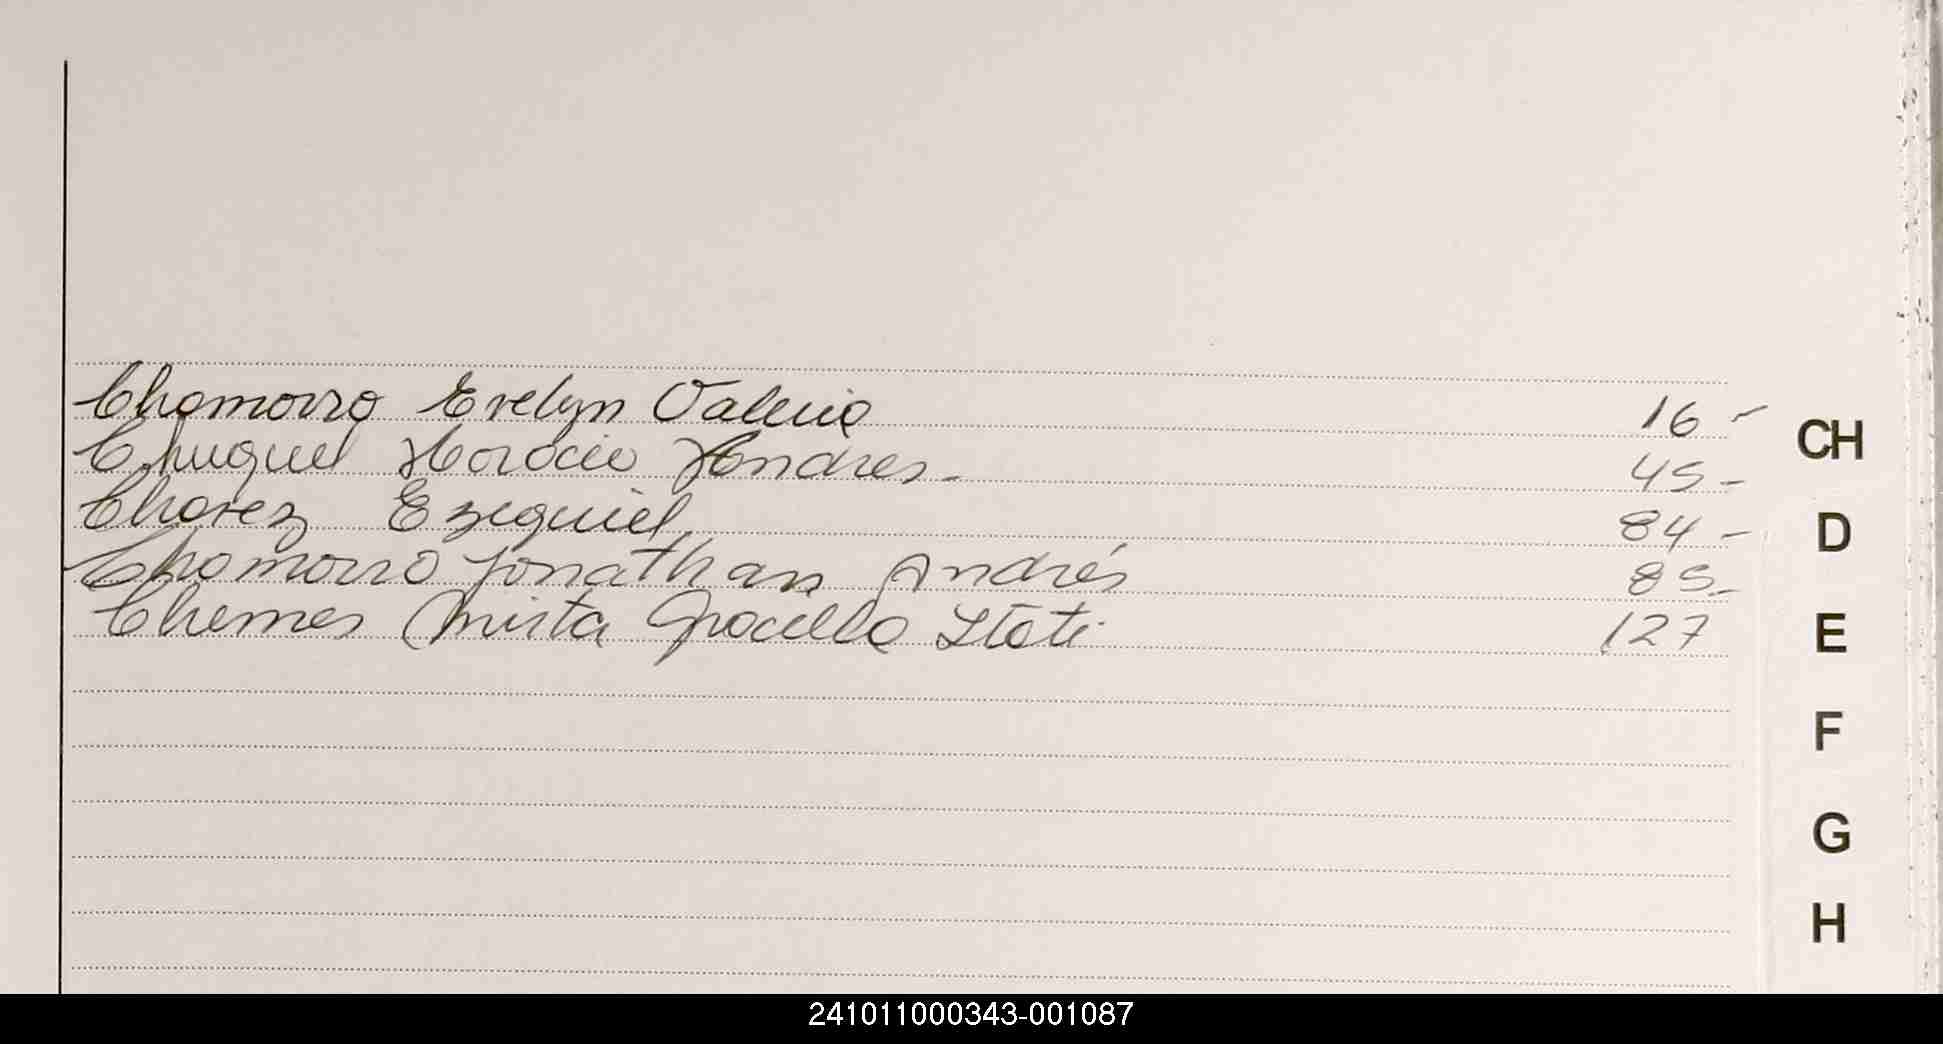 Chamorro Evelyn Valeria 16 -
CH
Chuquel Horacio Andres - 45 -
Chavez Ezequiel 84 -
D
Chamorro Jonathan Andrés 85 -
Chemes Mirta Graciela 127
E
F
G
H
241011000343-001087